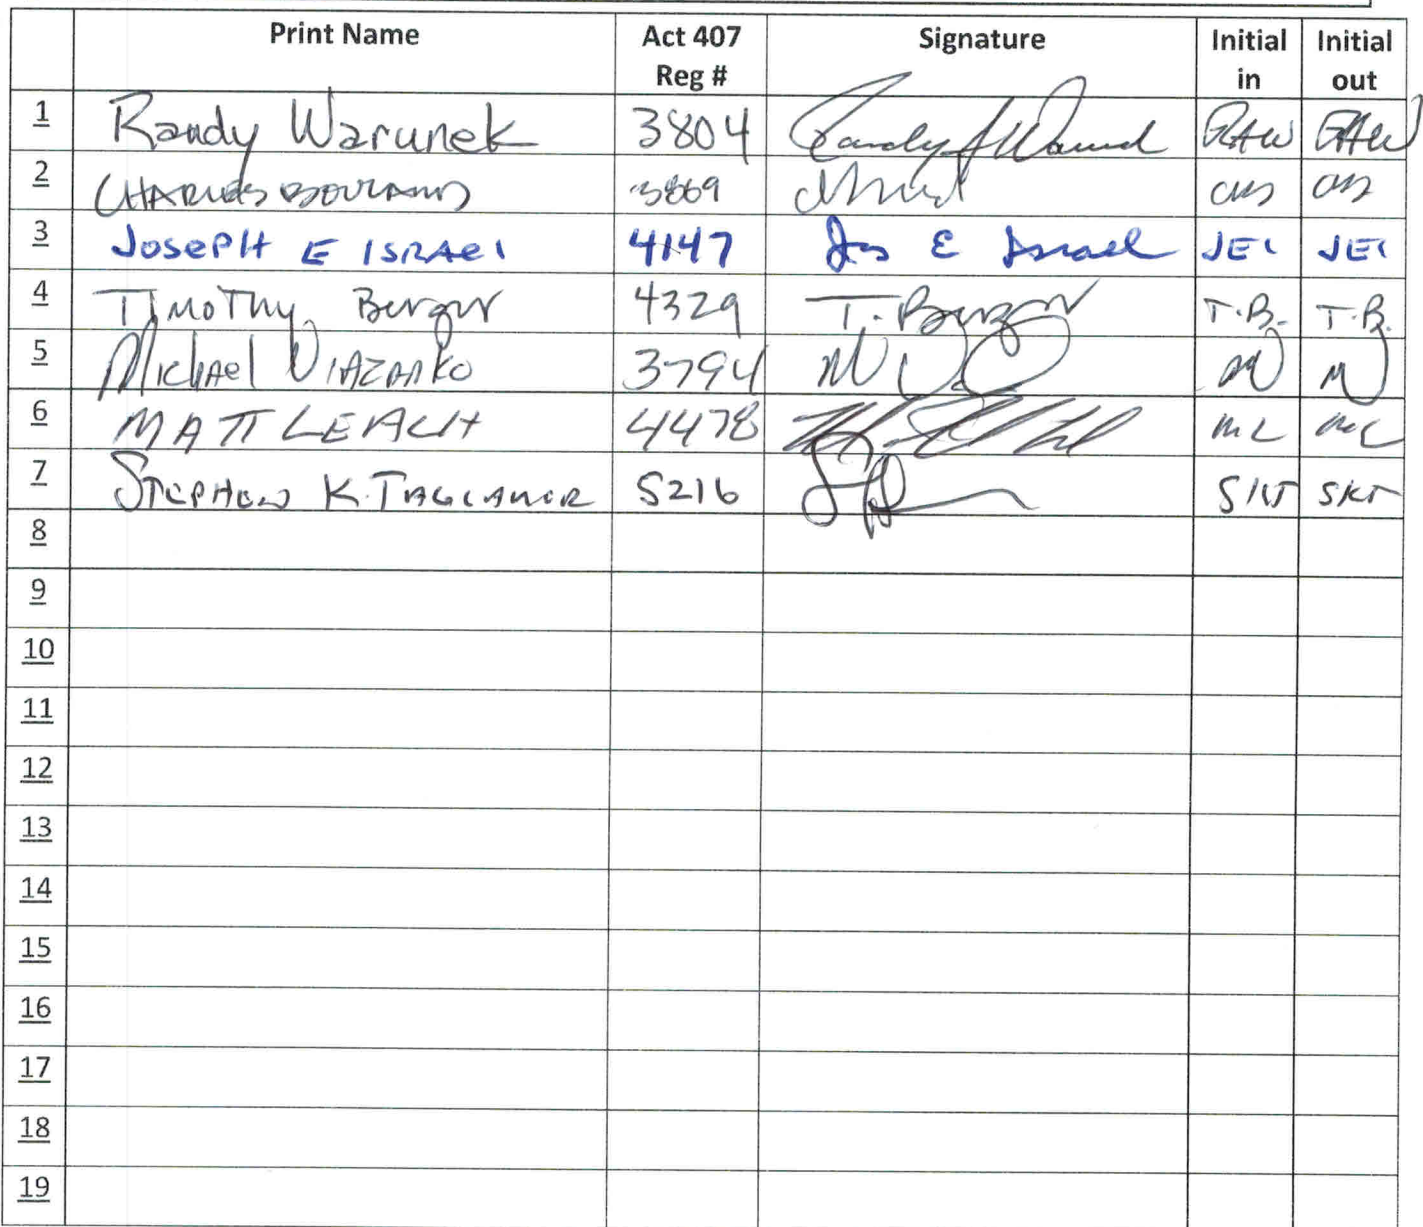 Print Name Act 407 Reg # Signature Initial in Initial out
1 Randy Warunek 3804 Randy A Warunek RAW RAW
2 CHARLES 3869
3 JOSEPH E ISRAEl 4147 Jos E Israel JEI JEI
4 TIMOThy Berger 4329 T. Berger T.B. T.B.
5 MIchAel 3794
6 MATT LEACH 4478 ML ML
7 STEPHEN K. 5216 SKT SKT
8
9
10
11
12
13
14
15
16
17
18
19